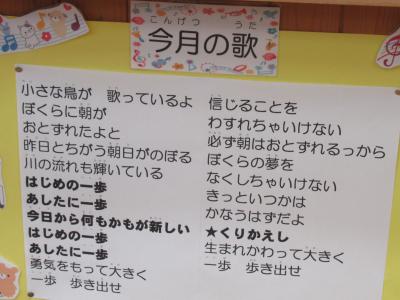 こんげつ うた
今月の歌
小さな鳥が 歌っているよ
ぼくらに朝が
おとずれたよと
昨日とちがう朝日がのぼる
川の流れも輝いている
はじめの一歩
あしたに一歩
今日から何もかもが新しい
はじめの一歩
あしたに一歩
勇気をもって大きく
一歩 歩き出せ
信じることを
わすれちゃいけない
必ず朝はおとずれるっから
ぼくらの夢を
なくしちゃいけない
きっといつかは
かなうはずだよ
★くりかえし
生まれかわって大きく
一歩 歩き出せ